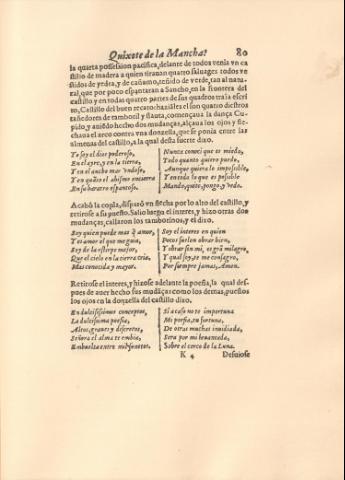 Quixote de la Mancha. 80
la quarta possession pacifica, delante de todos venia vn ca
stillo de madera a quien tirauan quatro saluages todos ve
stidos de yedra, y de cañamo, teñido de verde, tan al natu
ral, que por poco espantaran a Sancho, en la frontera del
castillo y en todas quatro partes de sus quadros traîa escri
to, Castillo del buen recato: hazianles el son quatro diestros
tañedores de tamboril y flauta, començaua la dança Cu-
pido, y auiẽdo hecho dos mudanças, alçaua los ojos y fle-
chaua el arco contra vna donzella, que se ponia entre las
almenas del castillo, a la qual desta suerte dixo.
Yo soy el dios poderoso,
En el ayre, y en la tierra,
Y en el ancho mar vndoso,
Y en quãto el abismo encierra
En su baratro espantoso.
Nunca conoci que es miedo,
Todo quanto quiero puedo,
Aunque quiera lo impossible,
Y en todo lo que es possible
Mando, quito, pongo, y vedo.
Acabô la copla, disparô vn flecha por lo alto del castillo, y
retirose a su puesto. Salio luego el interes, y hizo otras dos
mudanças, callaron los tamborinos, y el dixo.
Soy quien puede mas q̃ amor,
Y es amor el que me guia,
Soy de la estirpe mejor,
Que el cielo en la tierra cria,
Mas conocida y mayor.
Soy el interes en quien
Pocos suelen obrar bien,
Y obrar sin mi, es grã milagro,
Y qual soy, te me consagro,
Por siempre jamas, Amen.
Retirose el interes, y hizose adelante la poesia, la qual des-
pues de auer hecho sus mudãças como los demas, puestos
los ojos en la donzella del castillo dixo.
En dulcissimos conceptos,
La dulcissima poesia,
Altos, graues y discretos,
Señora el alma te embia,
Embuelta entre mil sonetos.
Si acaso no te importuna
Mi porfia, tu fortuna,
De otras muchas inuidiada,
Sera por mi leuantada,
Sobre el cerco de la Luna.
K 4 Desuiose